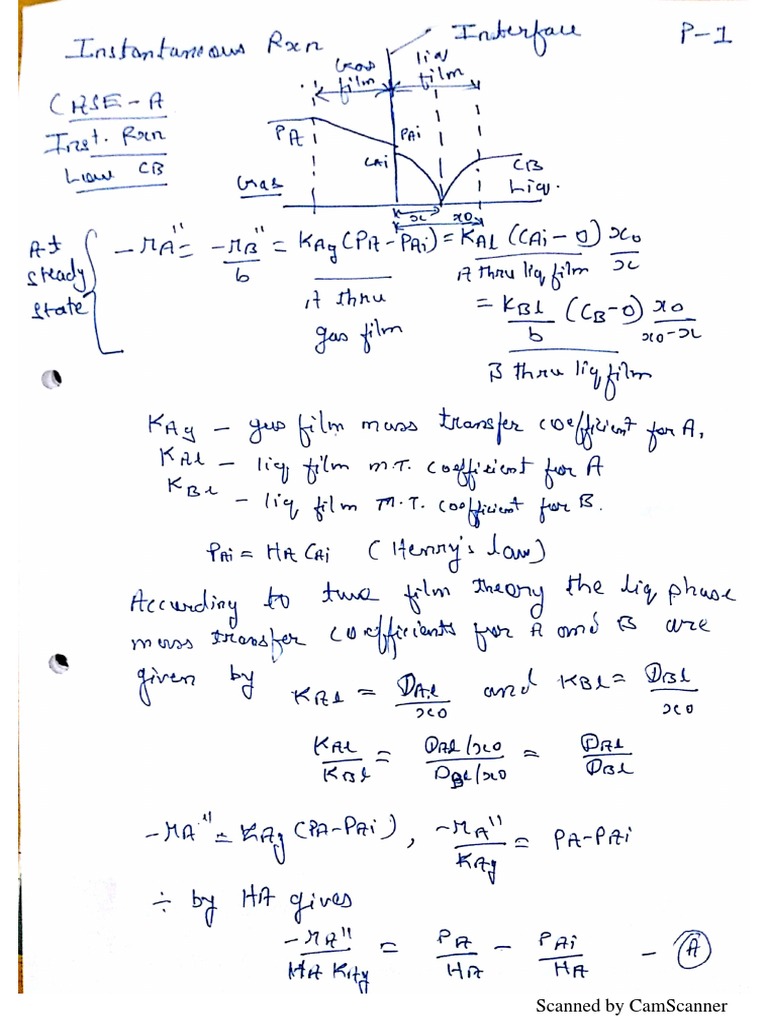 Instantaneous Rxn
Interface
P-1
Gas film
liq film
CASE-A
Inst. Rxn
Low CB
PA
PAi
CAi
CB
Gas
Liq.
x
x0
At steady state
-rA'' = -rB''/b = KAg (PA - PAi) = KAl (CAi - 0) x0/x
A thru gas film
A thru liq film
= KBl/b (CB - 0) x0/x0-x
B thru liq film
KAg - gas film mass transfer coefficient for A,
KAl - liq film m.T. coefficient for A
KBl - liq film M.T. coefficient for B.
PAi = HA CAi (Henry's law)
According to two film theory the liq phase
mass transfer coefficients for A and B are
given by KAl = DAl/x0 and KBl = DBl/x0
KAl/KBl = DAl/x0 / DBl/x0 = DAl/DBl
-rA'' = KAg (PA - PAi), -rA''/KAg = PA - PAi
÷ by HA gives
-rA''/HA KAg = PA/HA - PAi/HA - (A)
Scanned by CamScanner